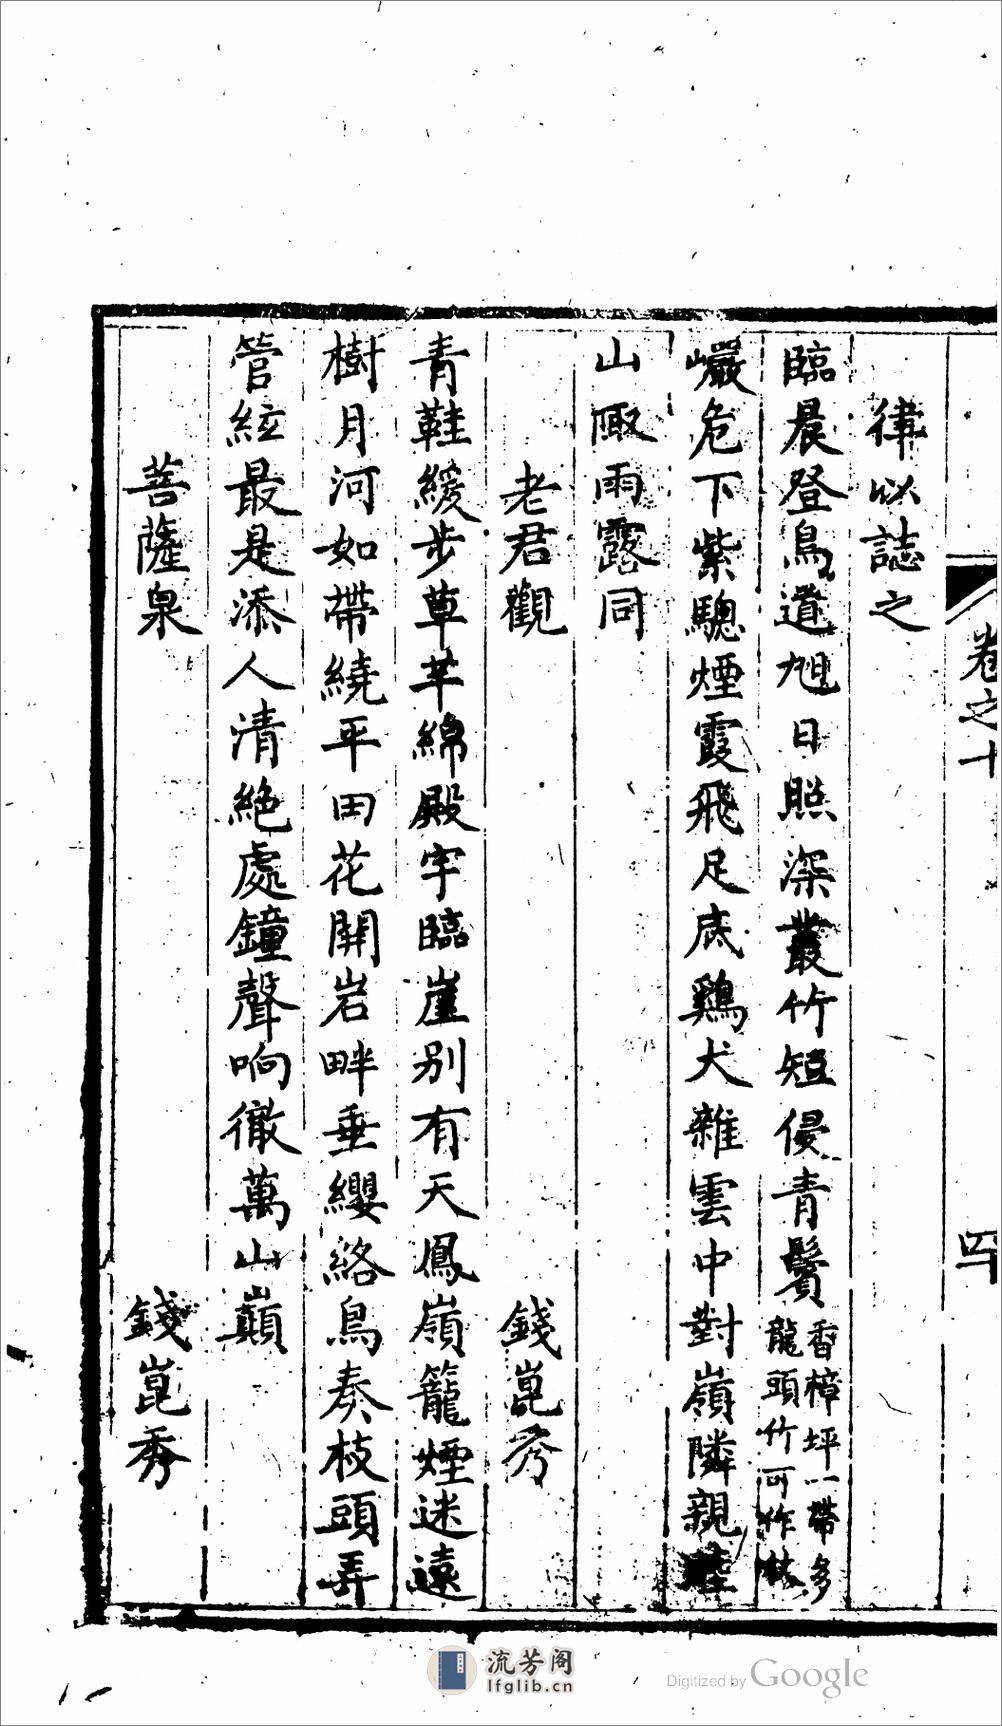 卷之十
四
律以誌之
臨晨登鳥道旭日照深叢竹短侵青鬢香樟坪一帶多
龍頭竹可作杖
巖危下紫驄煙霞飛足底鷄犬雜雲中對嶺隣親
山陬雨露同
老君觀 錢崑秀
青鞋緩步草芊綿殿宇臨崖别有天鳳嶺籠煙迷遠
樹月河如帶繞平田花開岩畔垂纓絡鳥奏枝頭弄
管絃最是添人清絶處鐘聲响徹萬山巔
菩薩泉 錢崑秀
流芳阁
lfglib.cn
Digitized by Google